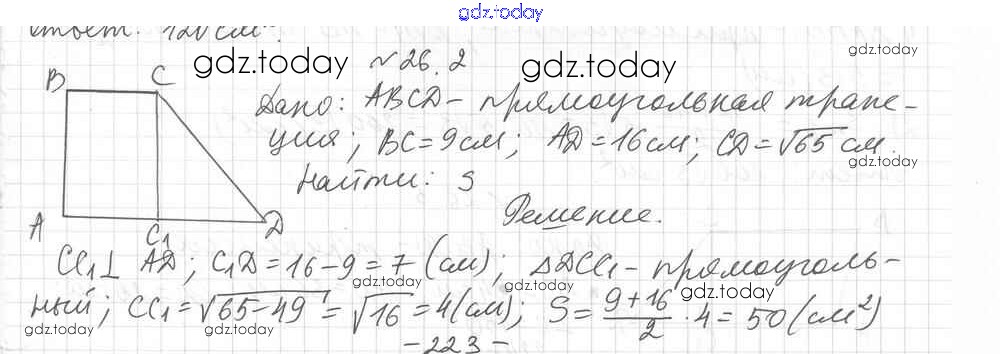 gdz.today
Ответ: 120 см²
gdz.today
№26.2
gdz.today
gdz.today
B C
Дано: ABCD - прямоугольная трапе-
ция; BC = 9 см; AD = 16 см; CD = √65 см.
gdz.today
Найти: S
Решение.
A C₁ D
CC₁⊥ AD; C₁D = 16 - 9 = 7 (см); ΔDCC₁ - прямоуголь-
gdz.today
gdz.today
ный; CC₁ = √65-49 = √16 = 4 (см); S = (9+16)/2 · 4 = 50 (см²)
gdz.today
gdz.today
gdz.today
gdz.today
- 223 -